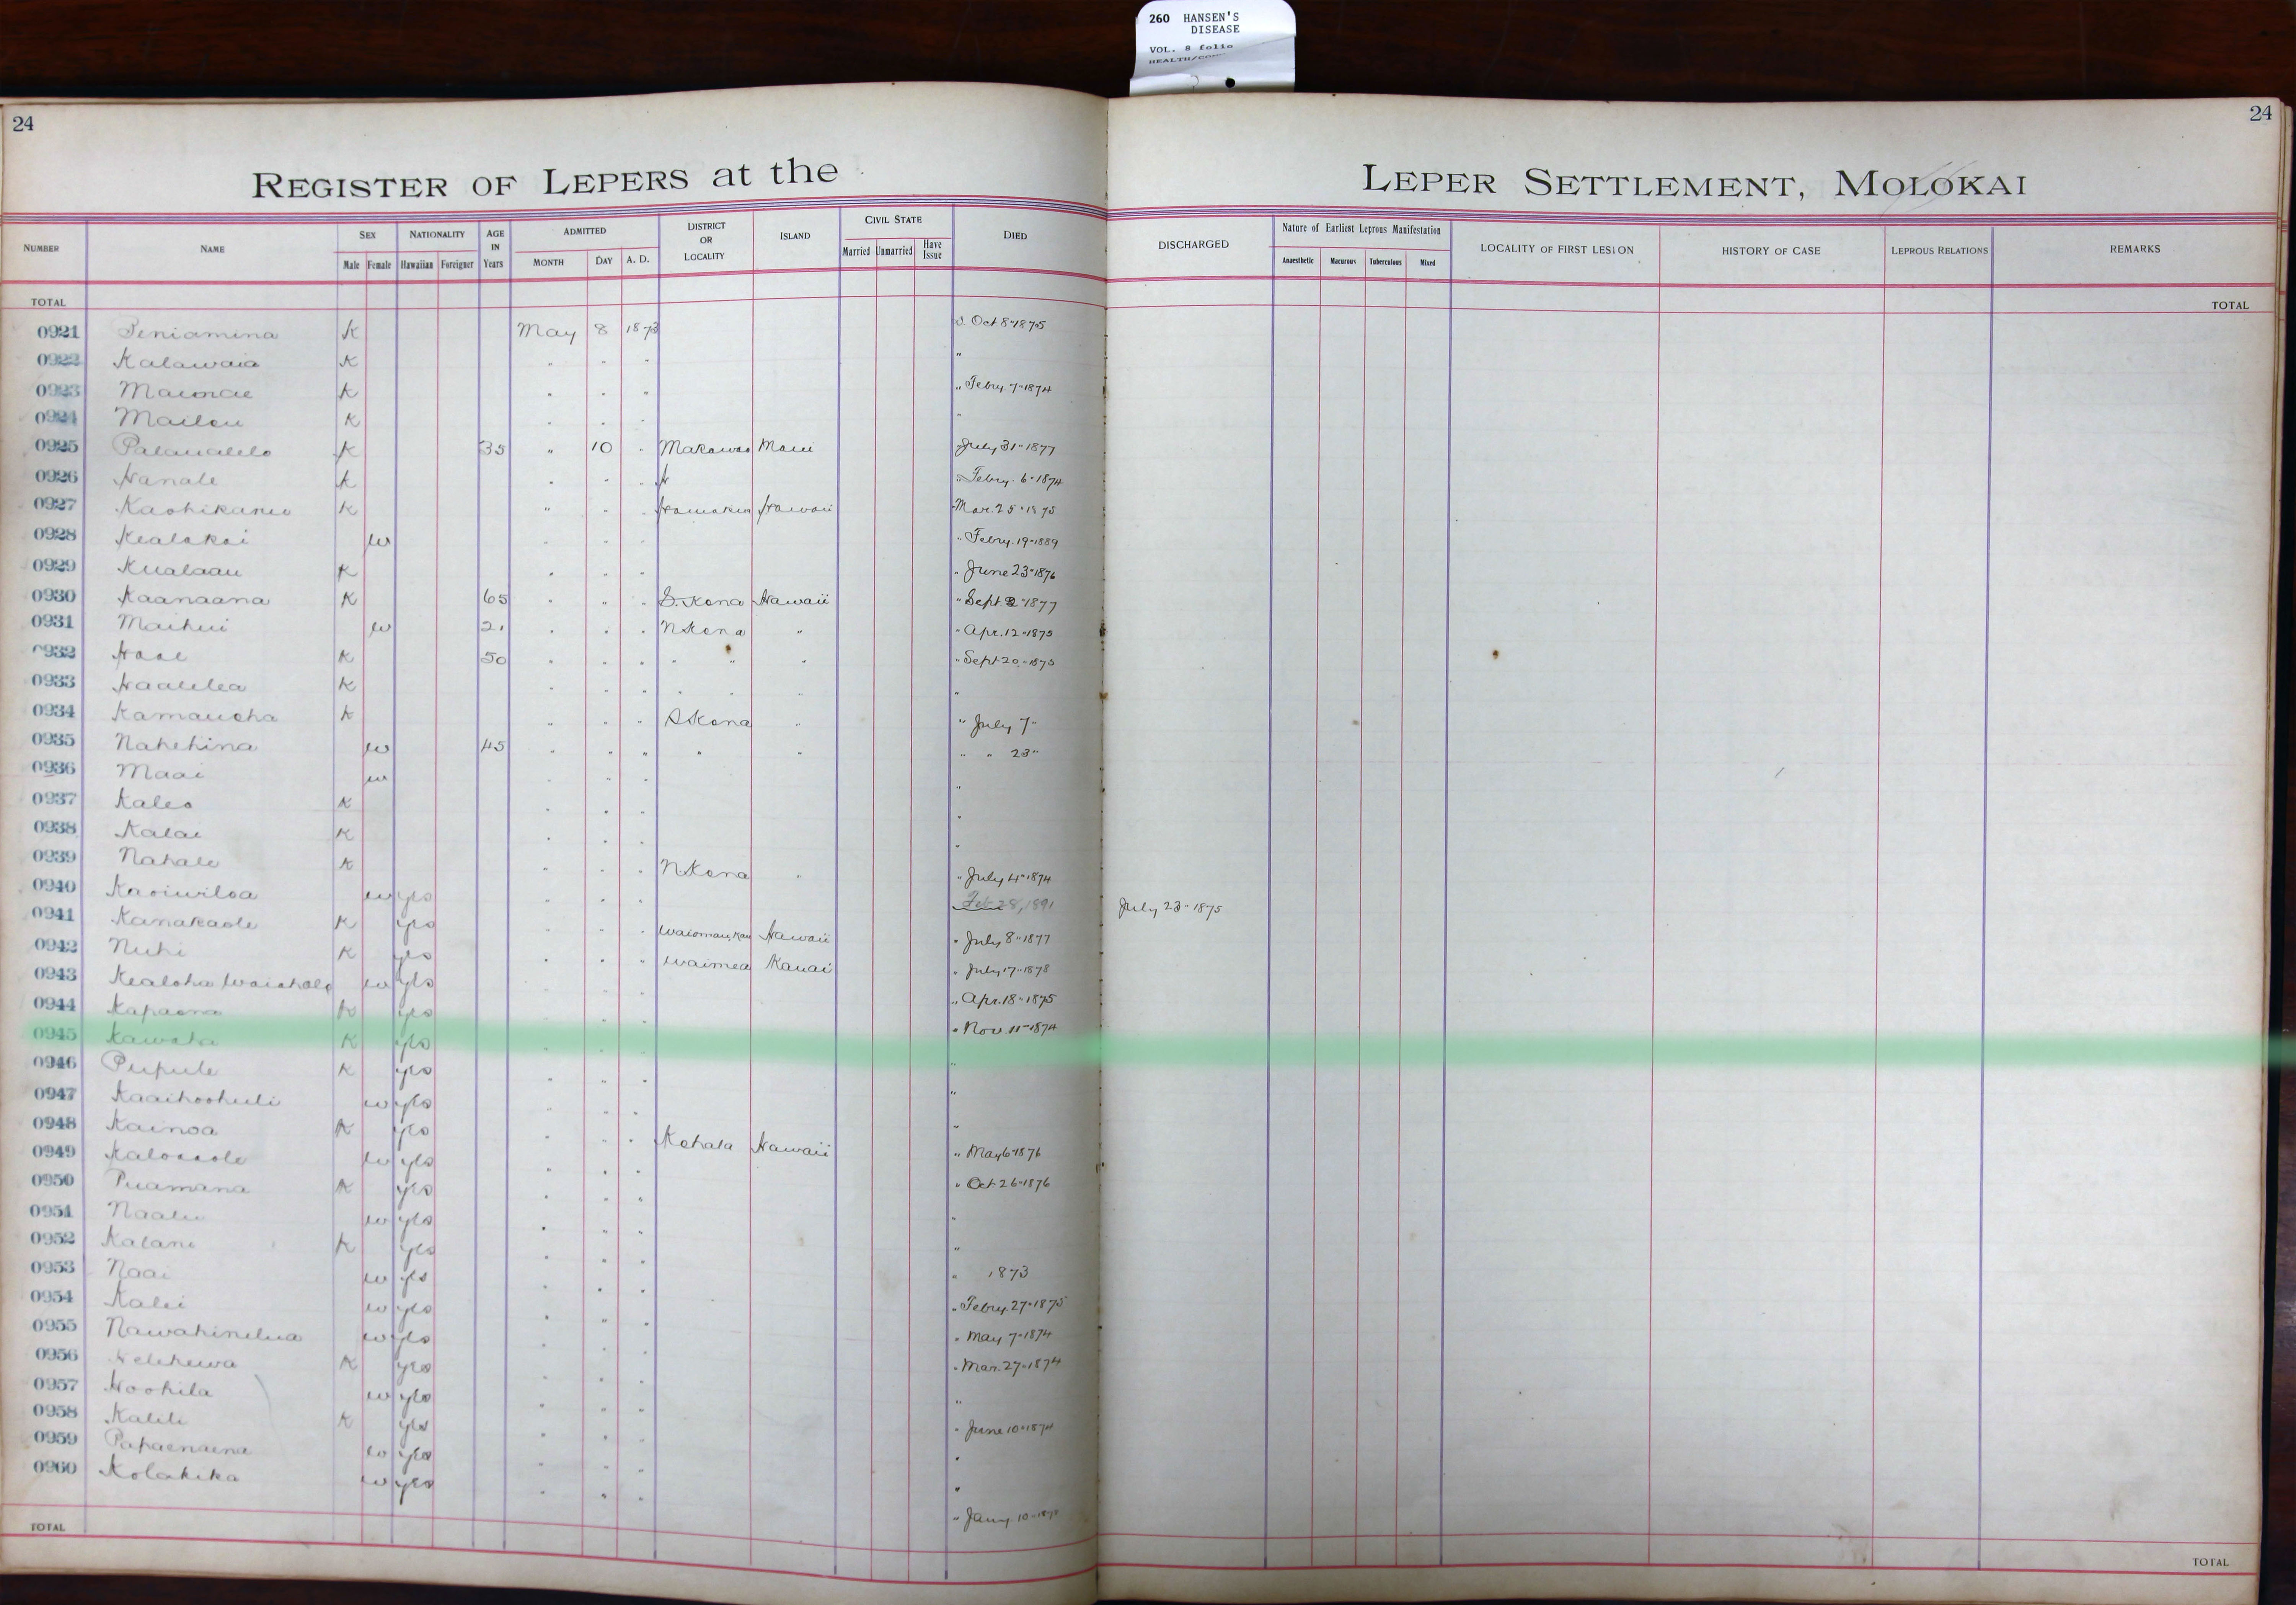 260 HANSEN'S
DISEASE
VOL. 8 folio
24
24
REGISTER OF LEPERS at the LEPER SETTLEMENT, MOLOKAI
NUMBER NAME SEX Male Female NATIONALITY Hawaiian Foreigner AGE IN Years ADMITTED MONTH DAY A. D. DISTRICT OR LOCALITY ISLAND CIVIL STATE Married Unmarried Have Issue DIED DISCHARGED Nature of Earliest Leprous Manifestation Anaesthetic Macurous Tuberculous Mixed LOCALITY OF FIRST LESION HISTORY OF CASE LEPROUS RELATIONS REMARKS
TOTAL TOTAL
0921 Peniamina K May 8 1873 Oct 8" 1875
0922 Kalawaia K " " " "
0923 Maunae K " " " " Febry. 7" 1874
0924 Mailou K " " " "
0925 Palaualelo K 35 " 10 " Makawao Maui July 31" 1877
0926 Hanale K " " " " Febry. 6" 1874
0927 K " " " Hamakua Hawaii Mar. 25" 1875
0928 Kealakai w " " " " Febry. 19" 1889
0929 Kualaau K " " " " June 23" 1876
0930 Kaanaana K 65 " " " S. Kona Hawaii " Sept 2" 1877
0931 Maihui w 21 " " " N Kona " " Apr. 12" 1875
0932 K 50 " " " " " " " Sept 20" 1875
0933 Haalelea K " " " " " " "
0934 Kamauoha K " " " S Kona " " July 7"
0935 Nahehina w 45 " " " " " " " 23"
0936 Maai w " " " "
0937 Kaleo K " " " "
0938 Kalae K " " " "
0939 Nahale K " " " N Kona " " July 4" 1874
0940 Kaoiwiloa w yes " " " Feb 28, 1891 July 23" 1875
0941 Kanakaole K yes " " " Hawaii " July 8" 1877
0942 Nuhi K yes " " " Waimea Kauai " July 17" 1878
0943 Kealoha w yes " " " Apr. 18" 1875
0944 Kapaona K yes " " " " Nov. 11" 1874
0945 K yes " " " "
0946 Pupule K yes " " " "
0947 Kaaihoohuli w yes " " " "
0948 Kainoa K yes " " " Kohala Hawaii " May 6" 1876
0949 w yes " " " " Oct 26" 1876
0950 Puamana K yes " " " "
0951 Naalu w yes " " " "
0952 Kalani K yes " " " " 1873
0953 Naai w yes " " " " Febry. 27" 1875
0954 Kalei w yes " " " " May 7" 1874
0955 Nawahinelua w yes " " " " Mar. 27" 1874
0956 Kelehewa K yes " " " "
0957 Hoohila w yes " " " " June 10" 1874
0958 Kalili K yes " " " "
0959 Papaenaena w yes " " " "
0960 Kolakika w yes " " " " Jany. 10"
TOTAL TOTAL